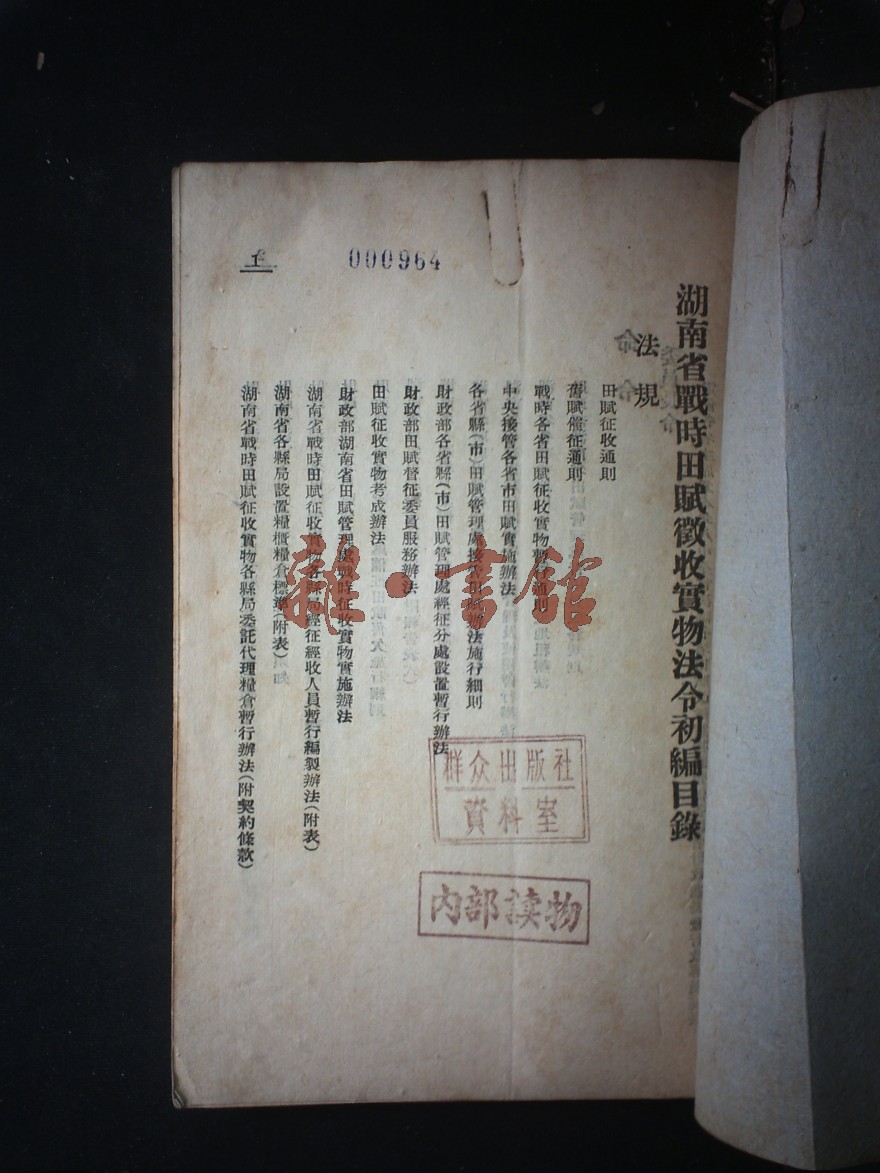 湖南省戰時田賦徵收實物法令初編目錄
法規
田賦征收通則
舊賦催征通則
戰時各省田賦征收實物暫行通則
中央接管各省市田賦實施辦法
各省縣(市)田賦管理處接管田賦辦法施行細則
財政部各省縣(市)田賦管理處經征分處設置暫行辦法
財政部田賦督征委員服務辦法
田賦征收實物考成辦法
財政部湖南省田賦管理處戰時征收實物實施辦法
湖南省戰時田賦征收實物各縣局經征經收人員暫行編製辦法(附表)
湖南省各縣局設置糧櫃糧倉標準(附表)
湖南省戰時田賦征收實物各縣局委託代理糧倉暫行辦法(附契約條款)
000964
群众出版社
資料室
内部读物
雜·書館